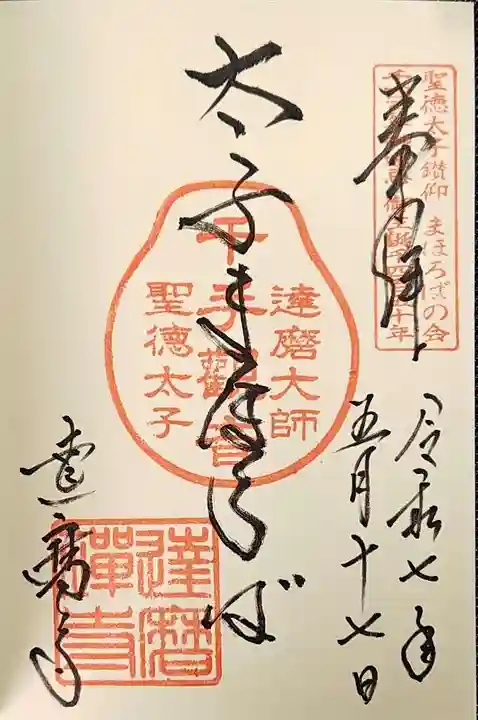 奉拝
聖徳太子讃仰 まほろばの会
令和七年
五月十七日
太子まほろば
達磨大師
千手観音
聖徳太子
達磨寺
達磨禅寺